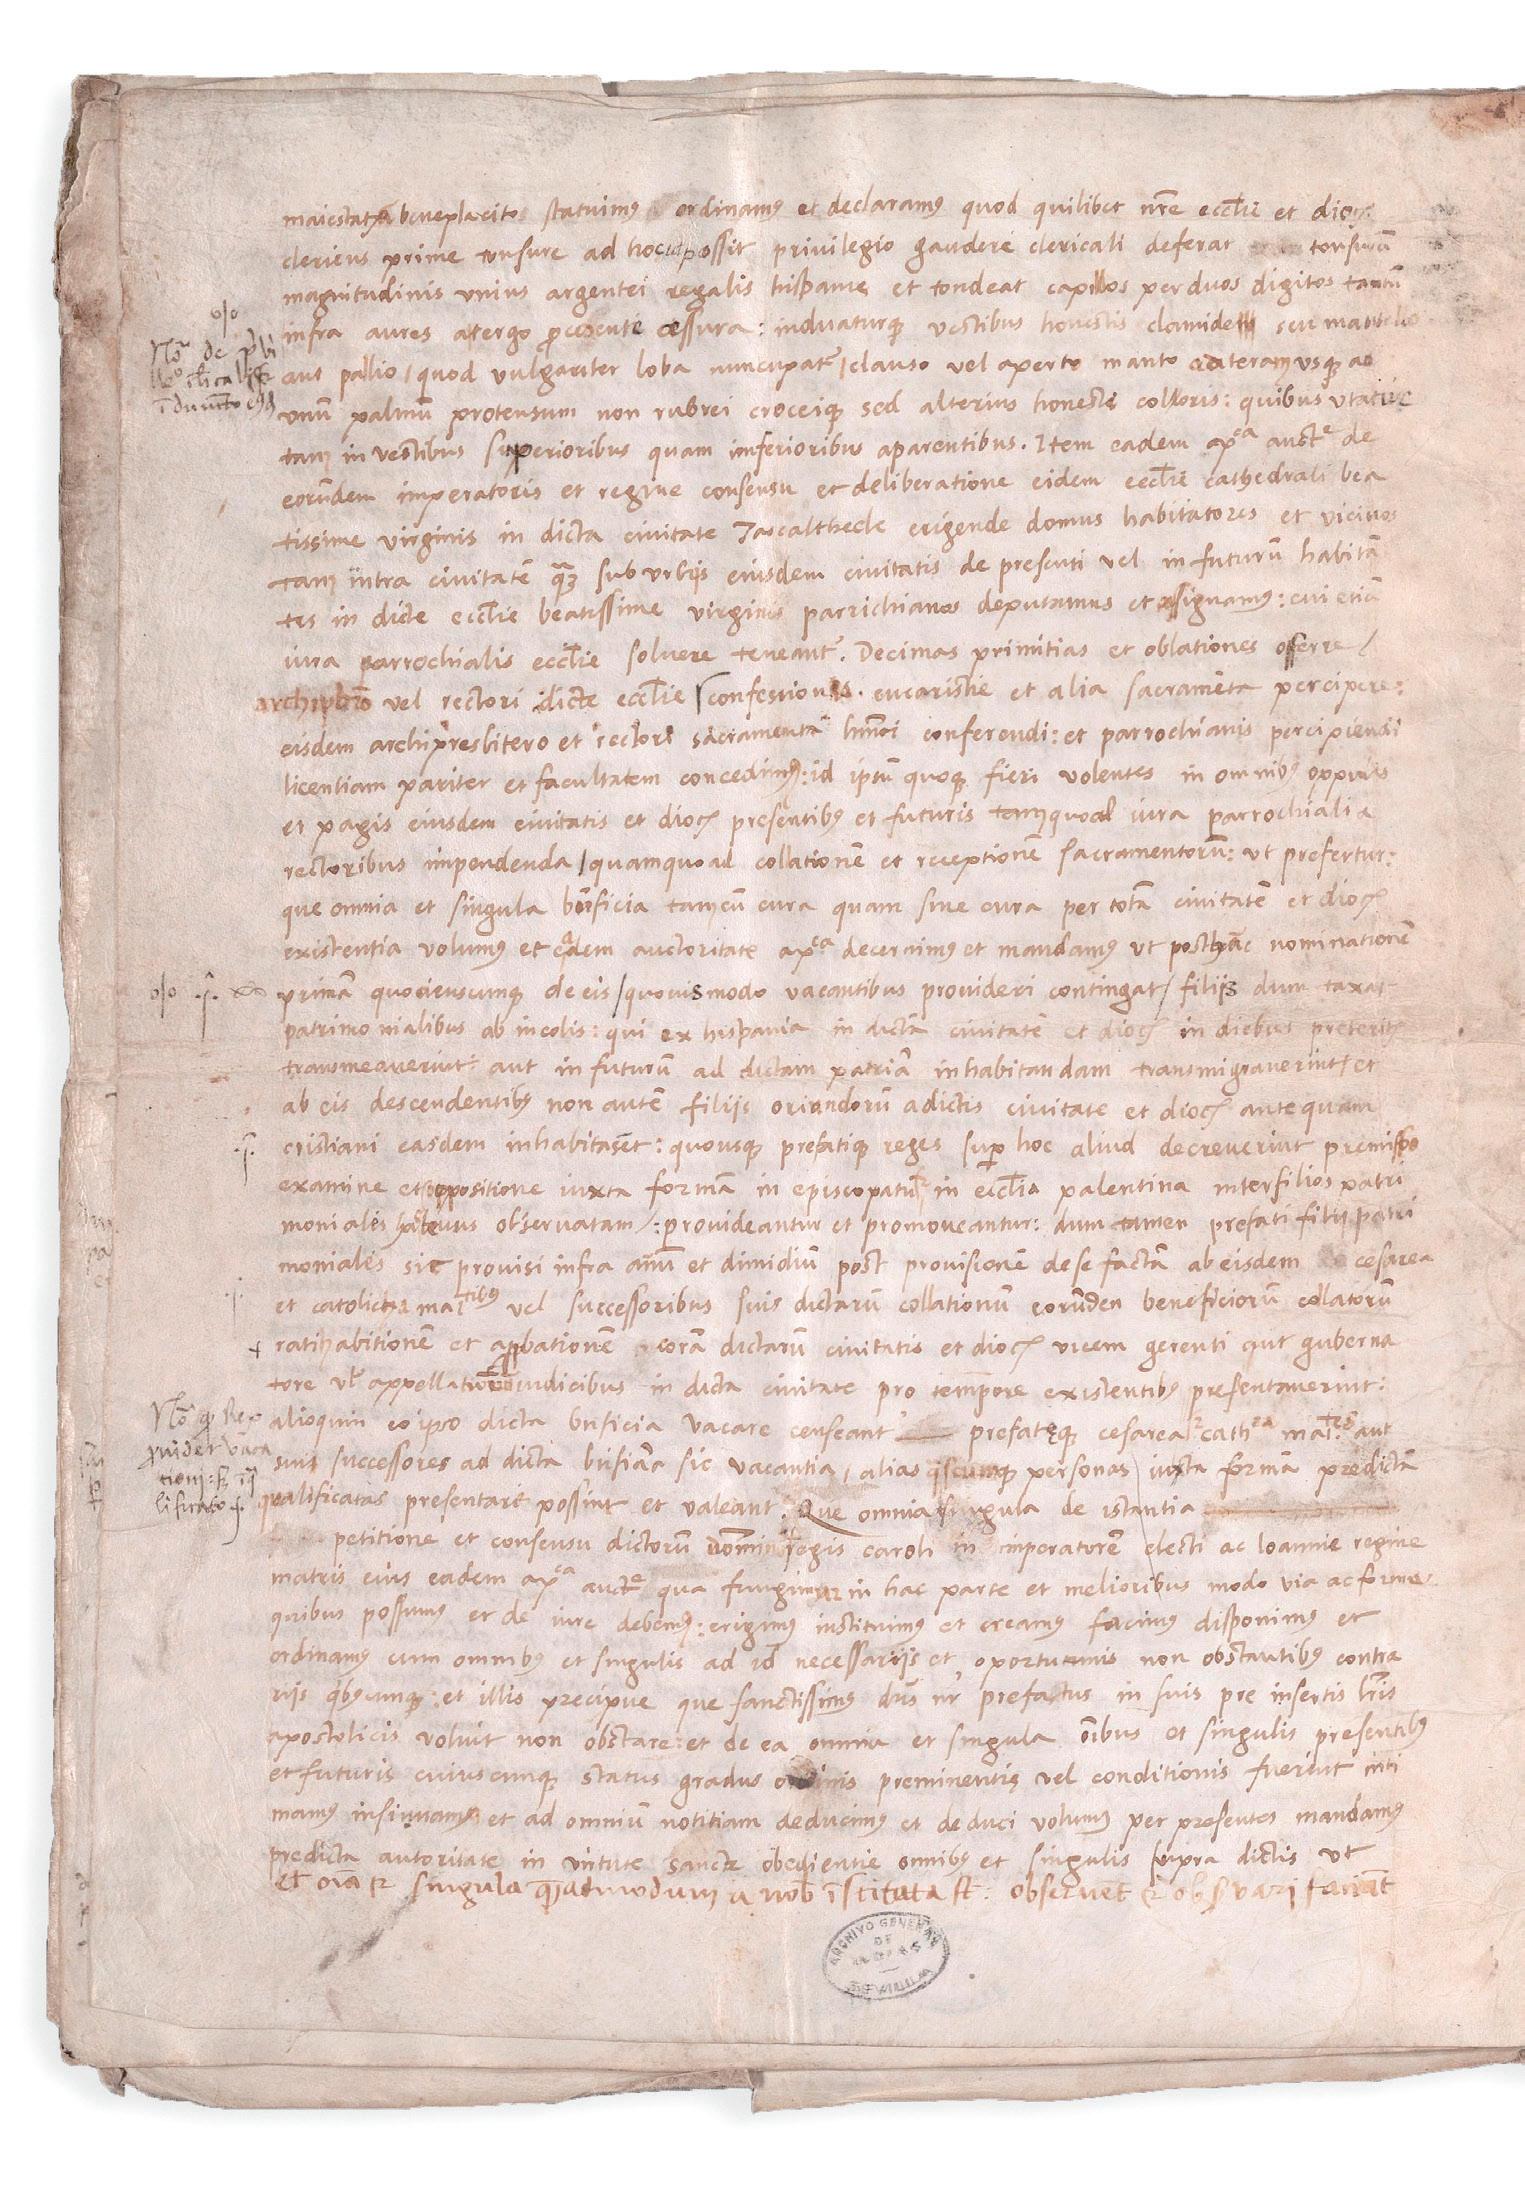 maiestatu beneplacito statuimus ordinamus et declaramus quod quilibet nre eccłie et dioc
clericus prime tonsure ad hoc ut possit privilegio gaudere clericali deferat tonsurā
magnitudinis unius argentei regalis hispanie et tondeat capillos per duos digitos tantū
infra aures a tergo procedente cessura: induaturq vestibus honestis clamide seu mantello
aut pallio / quod vulgariter loba nuncupatr / clauso vel aperto manto ad terram usq ad
unū palmū protensum non rubrei croceiq sed alterius honesti colloris: quibus utatur
tam in vestibus superioribus quam inferioribus aparentibus. Item eadem apca aucte de
eorūdem imperatoris et regine consensu et deliberatione eidem eccłie cathedrali bea
tissime virginis in dicta civitate Tascaltheele erigende domus habitatores et vicinos
tam intra civitatē quam suburbijs eiusdem civitatis de presenti vel in futurū habitā
tes in dicte eccłie beatissime virginis parrichianos deputamus et assignamus: cui etiā
iura parrochialis eccłie solvere teneantr. Decimas primitias et oblationes offerre /
archipbro vel rectori dicte eccłie / confessionis. eucaristie et alia sacramēta percipere:
eisdem archipresbitero et rectori sacramenta hmōi conferendi: et parrochianis percipiendi
licentiam pariter et facultatem concedimus: id ipsū quoq fieri volentes in omnibus oppidis
et pagis eiusdem civitatis et dioc presentibus et futuris tam quoad iura parrochialia
rectoribus impendenda / quam quoad collationē et receptionē sacramentorū: ut prefertur:
que omnia et singula bnficia tam cū cura quam sine cura per totā civitatē et dioc
existentia volumus et eadem auctoritate apca decernimus et mandamus ut posthāc nominationē
primā quocienscumq de eis / quovismodo vacantibus provideri contingat / filijs dum taxat
patrimonialibus ab incolis: qui ex hispania in dictā civitatē et dioc in diebus preteritis
transmeaverint: aut in futurū ad dictam patriā inhabitandam transmigraverint / et
ab eis descendentibus non autē filijs oriundorū a dictis civitate et dioc ante quam
cristiani easdem inhabitasēt: quousq prefatiq reges sup hoc aliud decreverint premisso
examine et oppositione iuxta formā in episcopatu et in eccłia palentina inter filios patri
moniales hactenus observatam /: provideantur et promoveantur: dum tamen prefati filij patri
moniales sic provisi infra annū et dimidiū post provisionē de se factā ab eisdem cesarea
et catolicis matibus vel successoribus suis dictarū collationū eorūdem beneficiorū collatorū
ratihabitionē et aprobationē corā dictarū civitatis et dioc vicem gerenti aut guberna
tore vł appellationū iudicibus in dicta civitate pro tempore existentibus presentaverint:
alioquin eo ipso dicta bnficia vacare censeantr prefateq cesarea et cathca mates aut
suis successores ad dicta bnficia sic vacantia / alias quascumq personas iuxta formā predictā
qualificatas presentare possint et valeant. Que omnia et singula de istantia
petitione et consensu dictorū domini regis caroli in imperatorē electi ac Ioannie regine
matris eius eadem apca aucte qua fungimur in hac parte et melioribus modo via ac forma
quibus possumus et de iure debemus: erigimus instituimus et creamus facimus disponimus et
ordinamus cum omnibus et singulis ad id necessarijs et oportunis non obstantibus contra
rijs qbuscumq: et illis precipue que sanctissimus dns nr prefactus in suis pre insertis lris
apostolicis voluit non obstare: et de ea omnia et singula oibus et singulis presentibus
et futuris cuiuscunq status gradus ordinis preminentie vel conditionis fuerint inti
mamus insinuamus et ad omniū notitiam deducimus et deduci volumus per presentes mandamus
predicta autoritate in virtute sancte obedientie omnibus et singulis supra dictis ut
et oīa et singula quemadmodum a nob īstituta st: observēt et observari faciāt
ARCHIVO GENERAL
DE
INDIAS
SEVILLA